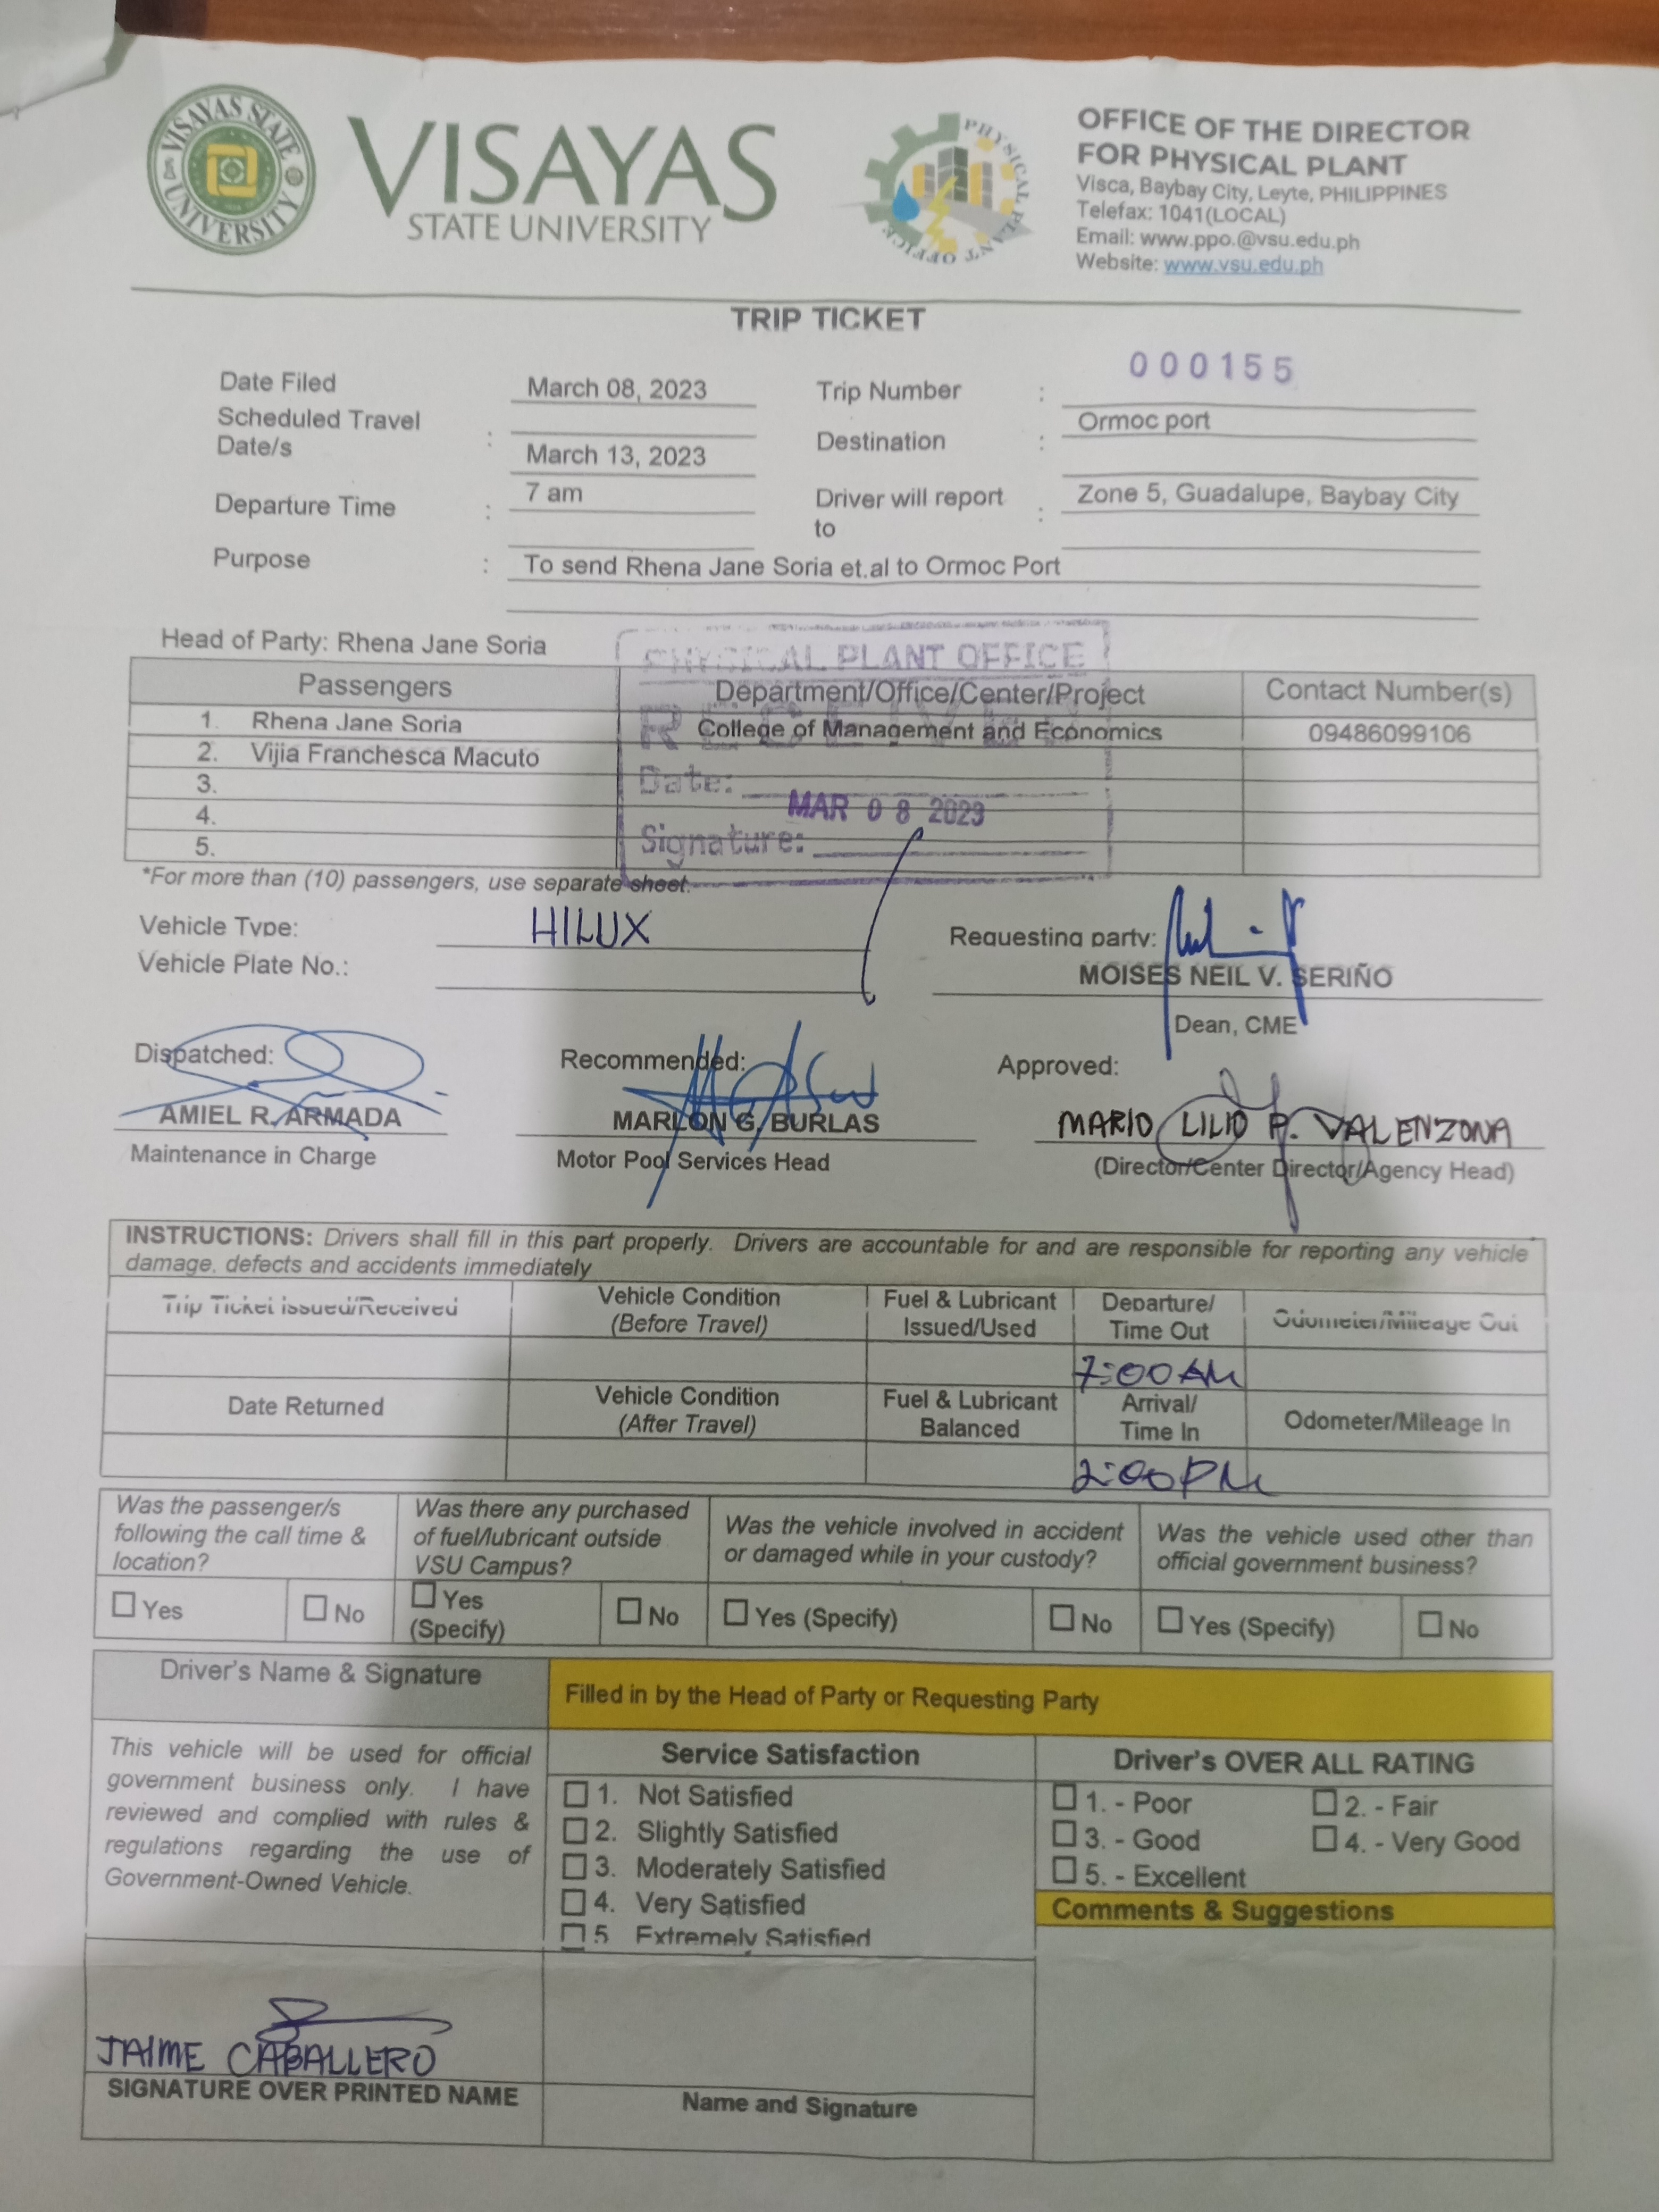 VISAYAS STATE UNIVERSITY
VISAYAS
STATE UNIVERSITY
PHYSICAL PLANT OFFICE
OFFICE OF THE DIRECTOR
FOR PHYSICAL PLANT
Visca, Baybay City, Leyte, PHILIPPINES
Telefax: 1041(LOCAL)
Email: www.ppo.@vsu.edu.ph
Website: www.vsu.edu.ph
TRIP TICKET
Date Filed March 08, 2023 Trip Number : 000155
Scheduled Travel Date/s : March 13, 2023 Destination : Ormoc port
Departure Time : 7 am Driver will report to : Zone 5, Guadalupe, Baybay City
Purpose : To send Rhena Jane Soria et.al to Ormoc Port
Head of Party: Rhena Jane Soria
PHYSICAL PLANT OFFICE
RECEIVED
Date: MAR 08 2023
Signature:
Passengers Department/Office/Center/Project Contact Number(s)
1. Rhena Jane Soria College of Management and Economics 09486099106
2. Vijia Franchesca Macuto
3.
4.
5.
*For more than (10) passengers, use separate sheet.
Vehicle Type: HILUX Requesting party:
Vehicle Plate No.: MOISES NEIL V. SERIÑO
Dean, CME
Dispatched: Recommended: Approved:
AMIEL R. ARMADA MARLON G. BURLAS MARIO LILIO P. VALENZONA
Maintenance in Charge Motor Pool Services Head (Director/Center Director/Agency Head)
INSTRUCTIONS: Drivers shall fill in this part properly. Drivers are accountable for and are responsible for reporting any vehicle
damage, defects and accidents immediately
Trip Ticket Issued/Received Vehicle Condition (Before Travel) Fuel & Lubricant Issued/Used Departure/ Time Out Odometer/Mileage Out
7:00 AM
Date Returned Vehicle Condition (After Travel) Fuel & Lubricant Balanced Arrival/ Time In Odometer/Mileage In
2:00 PM
Was the passenger/s following the call time & location? Was there any purchased of fuel/lubricant outside VSU Campus? Was the vehicle involved in accident or damaged while in your custody? Was the vehicle used other than official government business?
Yes No Yes (Specify) No Yes (Specify) No Yes (Specify) No
Driver's Name & Signature Filled in by the Head of Party or Requesting Party
This vehicle will be used for official
government business only. I have
reviewed and complied with rules &
regulations regarding the use of
Government-Owned Vehicle.
Service Satisfaction
1. Not Satisfied
2. Slightly Satisfied
3. Moderately Satisfied
4. Very Satisfied
5 Extremely Satisfied
Driver's OVER ALL RATING
1. - Poor 2. - Fair
3. - Good 4. - Very Good
5. - Excellent
Comments & Suggestions
JAIME CABALLERO
SIGNATURE OVER PRINTED NAME Name and Signature